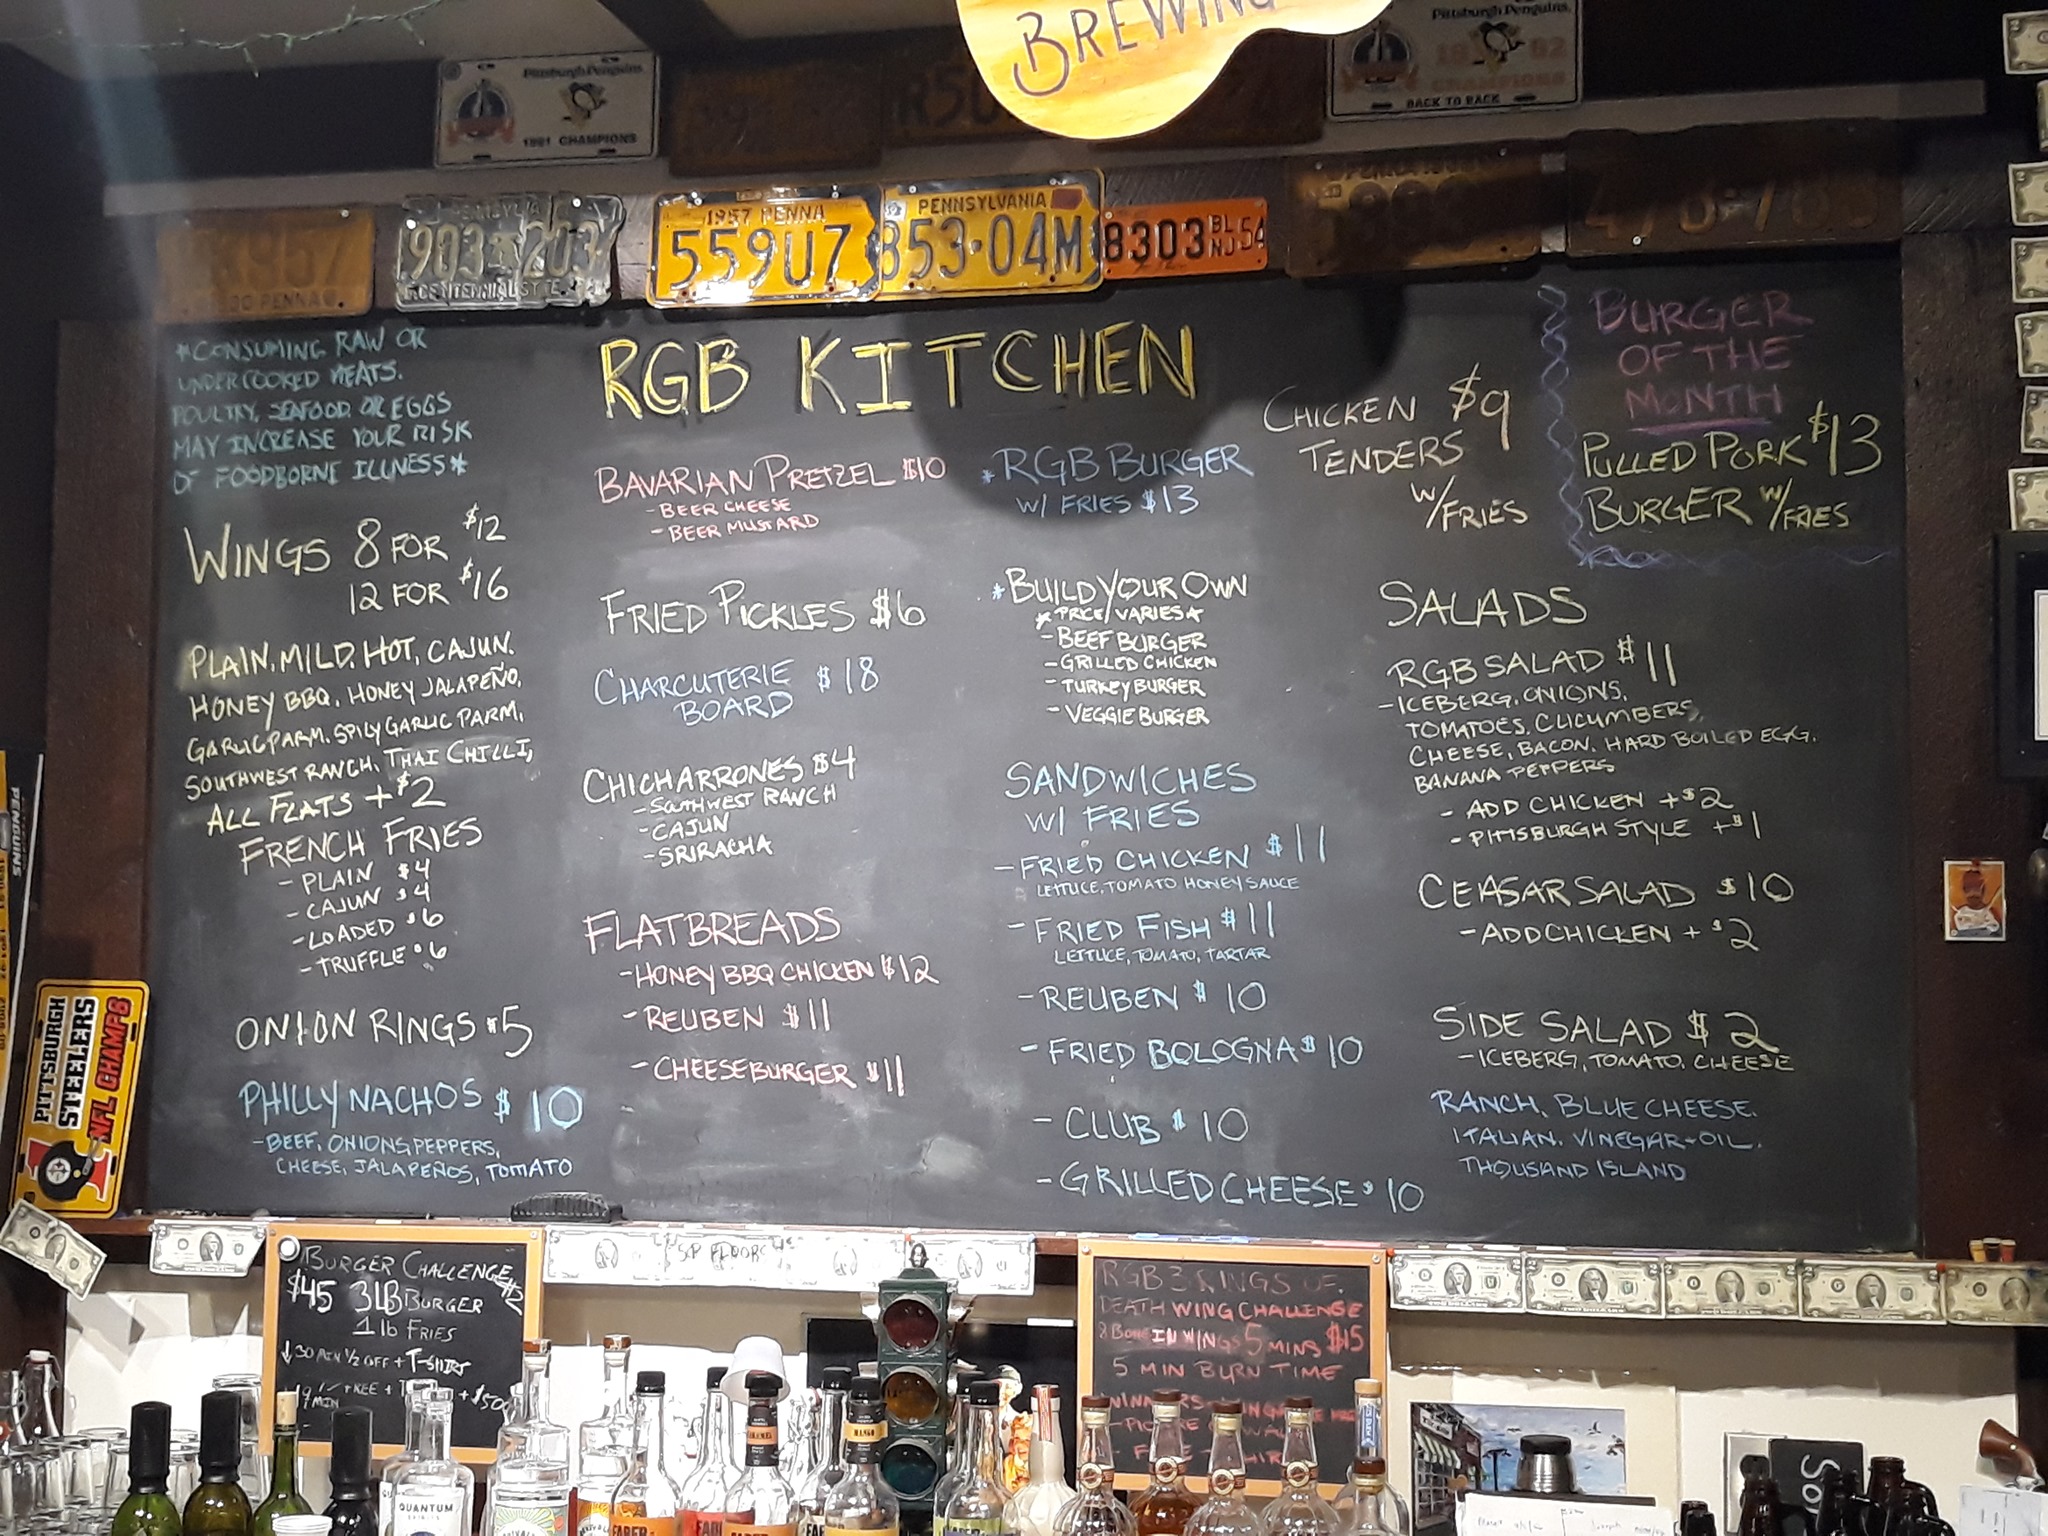 BREWING
Pittsburgh Penguins
1991 CHAMPIONS
Pittsburgh Penguins
CHAMPIONS
BACK TO BACK
1957 PENNA
559U7
PENNSYLVANIA
853·04M
8303 BL NJ 54
*CONSUMING RAW OR
UNDERCOOKED MEATS.
POULTRY, SEAFOOD OR EGGS
MAY INCREASE YOUR RISK
OF FOODBORNE ILLNESS*
WINGS 8 FOR $12
12 FOR $16
PLAIN, MILD, HOT, CAJUN.
HONEY BBQ, HONEY JALAPEÑO,
GARLIC PARM, SPICY GARLIC PARM,
SOUTHWEST RANCH, THAI CHILLI,
ALL FLATS +$2
FRENCH FRIES
- PLAIN $4
- CAJUN $4
- LOADED $6
- TRUFFLE $6
ONION RINGS $5
PHILLY NACHOS $10
- BEEF, ONIONS, PEPPERS,
CHEESE, JALAPEÑOS, TOMATO
RGB KITCHEN
BAVARIAN PRETZEL $10
- BEER CHEESE
- BEER MUSTARD
FRIED PICKLES $6
CHARCUTERIE $18
BOARD
CHICHARRONES $4
- SOUTHWEST RANCH
- CAJUN
- SRIRACHA
FLATBREADS
- HONEY BBQ CHICKEN $12
- REUBEN $11
- CHEESEBURGER $11
*RGB BURGER
W/ FRIES $13
*BUILD YOUR OWN
*PRICE VARIES*
- BEEF BURGER
- GRILLED CHICKEN
- TURKEY BURGER
- VEGGIE BURGER
SANDWICHES
W/ FRIES
- FRIED CHICKEN $11
LETTUCE, TOMATO HONEY SAUCE
- FRIED FISH $11
LETTUCE, TOMATO, TARTAR
- REUBEN $10
- FRIED BOLOGNA $10
- CLUB $10
- GRILLED CHEESE $10
CHICKEN $9
TENDERS
W/FRIES
BURGER
OF THE
MONTH
PULLED PORK $13
BURGER W/FRIES
SALADS
RGB SALAD $11
- ICEBERG, ONIONS,
TOMATOES, CUCUMBERS,
CHEESE, BACON, HARD BOILED EGG,
BANANA PEPPERS
- ADD CHICKEN +$2
- PITTSBURGH STYLE +$1
CEASAR SALAD $10
- ADD CHICKEN + $2
SIDE SALAD $2
- ICEBERG, TOMATO, CHEESE
RANCH, BLUE CHEESE,
ITALIAN, VINEGAR+OIL,
THOUSAND ISLAND
PENGUINS
PITTSBURGH
STEELERS
NFL CHAMPS
BURGER CHALLENGE
$45 3LB BURGER
1 lb FRIES
↓30 MIN ½ OFF + T-SHIRT
MIN
RGB 3 RINGS OF
DEATH WING CHALLENGE
8 BONE IN WINGS 5 MINS $15
5 MIN BURN TIME
WINNERS
QUANTUM
SPIRITS
MANGO
FABER